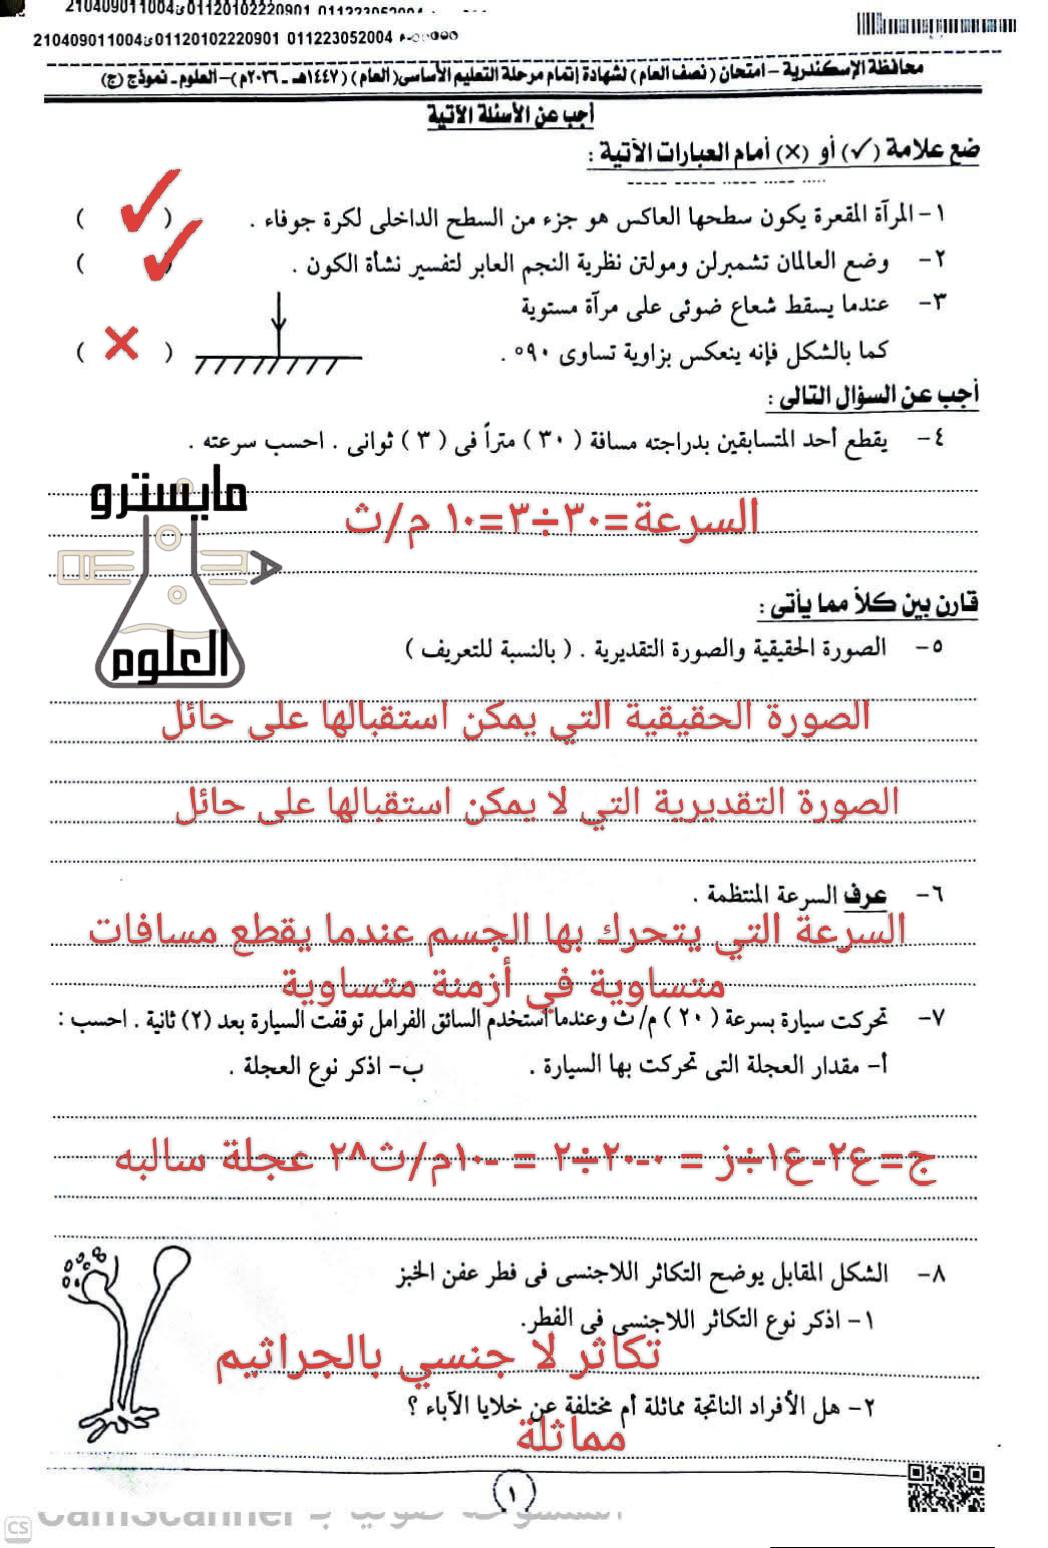 210409011004ئ01120102220901 011223052004
210409011004ئ01120102220901 011223052004
محافظة الإسكندرية – امتحان ( نصف العام ) لشهادة إتمام مرحلة التعليم الأساسى( العام ) (١٤٤٧هـ ـ ٢٠٢٦م )– العلوم ـ نموذج (ج)
أجب عن الأسئلة الآتية
ضع علامة (✓) أو (×) أمام العبارات الآتية :
١- المرآة المقعرة يكون سطحها العاكس هو جزء من السطح الداخلى لكرة جوفاء . ( ✓ )
٢- وضع العالمان تشمبرلن ومولتن نظرية النجم العابر لتفسير نشأة الكون . ( ✓ )
٣- عندما يسقط شعاع ضوئى على مرآة مستوية
كما بالشكل فإنه ينعكس بزاوية تساوى ٩٠° . ( × )
أجب عن السؤال التالى :
٤- يقطع أحد المتسابقين بدراجته مسافة ( ٣٠ ) متراً فى ( ٣ ) ثوانى . احسب سرعته .
مايسترو
السرعة=٣٠÷٣=١٠ م/ث
العلوم
قارن بين كلاً مما يأتى :
٥- الصورة الحقيقية والصورة التقديرية . ( بالنسبة للتعريف )
الصورة الحقيقية التي يمكن استقبالها على حائل
الصورة التقديرية التي لا يمكن استقبالها على حائل
٦- عرف السرعة المنتظمة .
السرعة التي يتحرك بها الجسم عندما يقطع مسافات
متساوية في أزمنة متساوية
٧- تحركت سيارة بسرعة ( ٢٠ ) م/ ث وعندما استخدم السائق الفرامل توقفت السيارة بعد (٢) ثانية . احسب :
أ- مقدار العجلة التى تحركت بها السيارة . ب- اذكر نوع العجلة .
ج=ع٢-ع١÷ز = ٠-٢٠÷٢ = -١٠م/ث^٢ عجلة سالبه
٨- الشكل المقابل يوضح التكاثر اللاجنسى فى فطر عفن الخبز
١- اذكر نوع التكاثر اللاجنسى فى الفطر.
تكاثر لا جنسي بالجراثيم
٢- هل الأفراد الناتجة مماثلة أم مختلفة عن خلايا الآباء ؟
مماثلة
١
CS CamScanner الممسوحة ضوئيا بـ